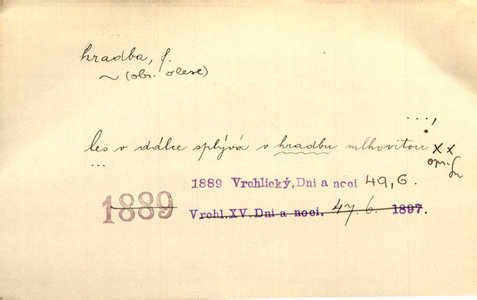 hradba, f.
~ (obr. )
...,
les v dálce splývá v hradbu mlhovitou xx
...
opr.
1889 Vrchlický, Dni a noci 49, 6.
1889
Vrchl. XV. Dni a noci. 47. 6. 1897.